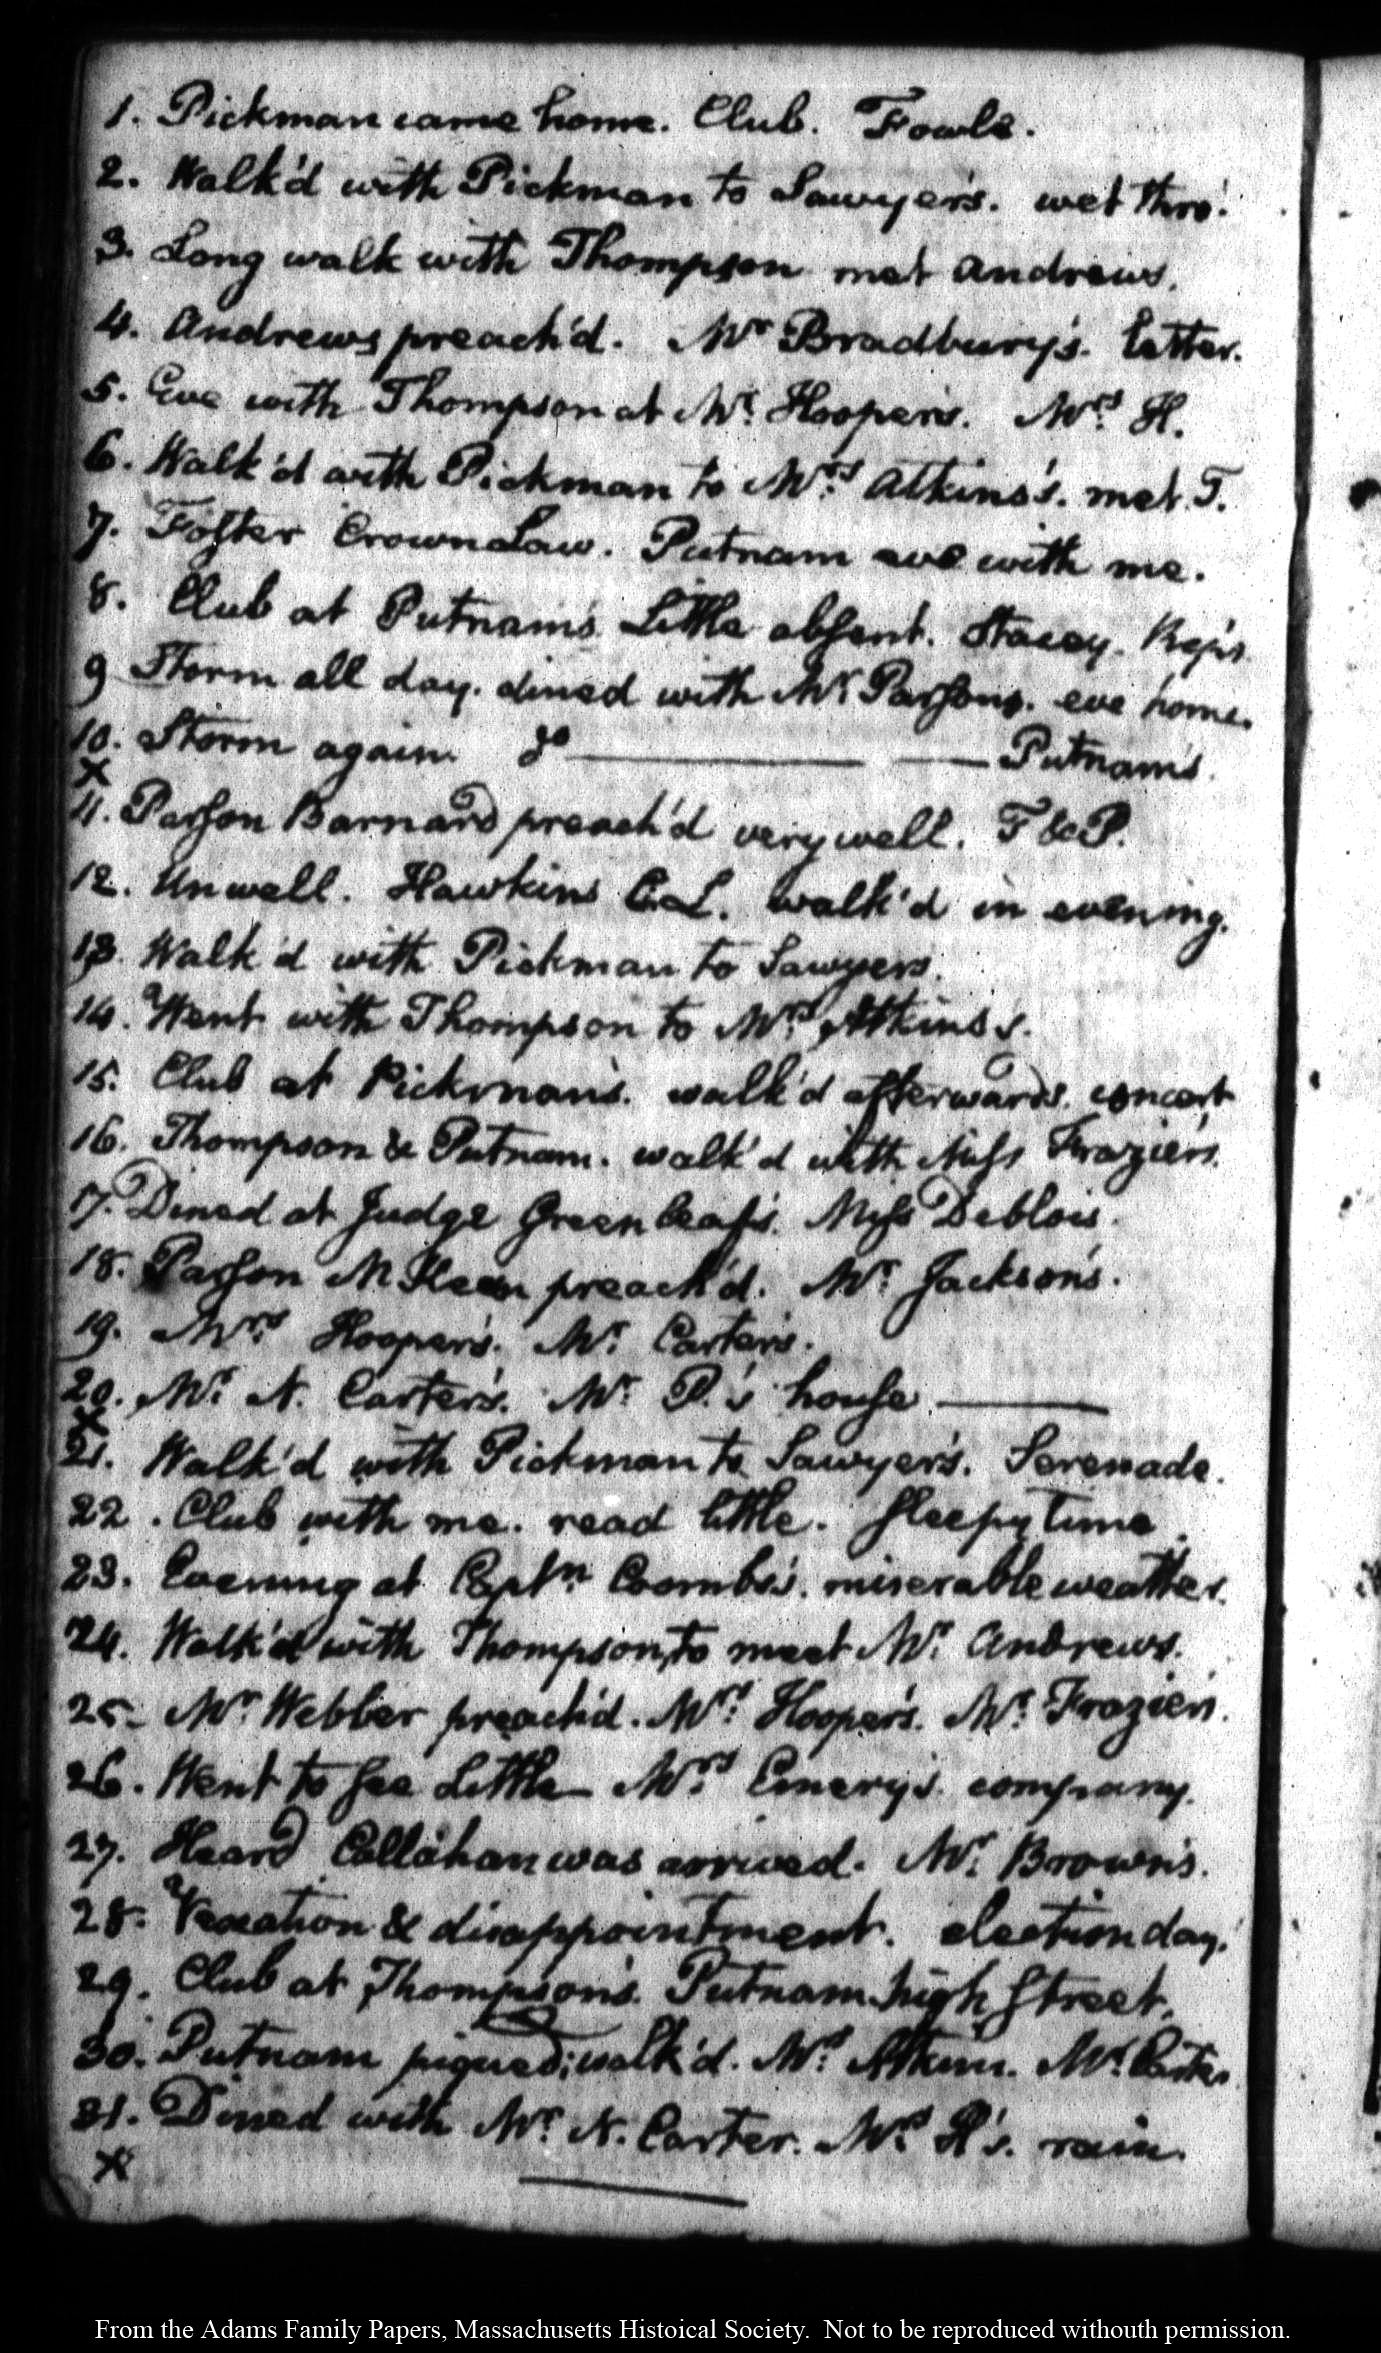 1. Pickman came home. Club. Fowle.
2. Walk'd with Pickman to Sawyer's. wet thro'.
3. Long walk with Thompson met Andrews.
4. Andrews preach'd. Mr Bradbury's. letter.
5. Eve with Thompson at Mr. Hooper's. Mrs. H.
6. Walk'd with Pickman to Mrs. Atkins's. met T.
7. Foster Crown Law. Putnam eve with me.
8. Club at Putnam's. Little absent. Stacey.
9 Storm all day. dined with Mr. Parsons. eve home.
10. Storm again. do ———— —— Putnam's.
x
11. Parson Barnard preach'd very well. T & P.
12. Unwell. Hawkins C.L. walk'd in evening.
13. Walk'd with Pickman to Sawyers.
14. Went with Thompson to Mrs. Atkins's.
15. Club at Pickman's. walk'd afterwards. concert
16. Thompson & Putnam. walk'd with Miss Frazier's.
17. Dined at Judge Greenleaf's. Miss Deblois.
18. Parson McKeen preach'd. Mr. Jackson's.
19. Mrs. Hooper's. Mr. Carter's.
20. Mr. N. Carter's. Mr. P.'s house ————
x
21. Walk'd with Pickman to Sawyer's. Serenade.
22. Club with me. read little. sleepy time.
23. Evening at Captn. Coombs's. miserable weather.
24. Walk'd with Thompson, to meet Mr. Andrews.
25. Mr. Webber preach'd. Mrs. Hooper's. Mr. Frazier's.
26. Went to see Little— Mrs. Emery's. company.
27. Heard Callahan was arrived. Mr. Brown's.
28. Vexation & disappointment. election day.
29. Club at Thompson's. Putnam. high Street.
30. Putnam piqued; walk'd. Mrs. Atkins. Mr. Carter.
31. Dined with Mr. N. Carter. Mrs. H's. rain.
x
From the Adams Family Papers, Massachusetts Histoical Society. Not to be reproduced withouth permission.